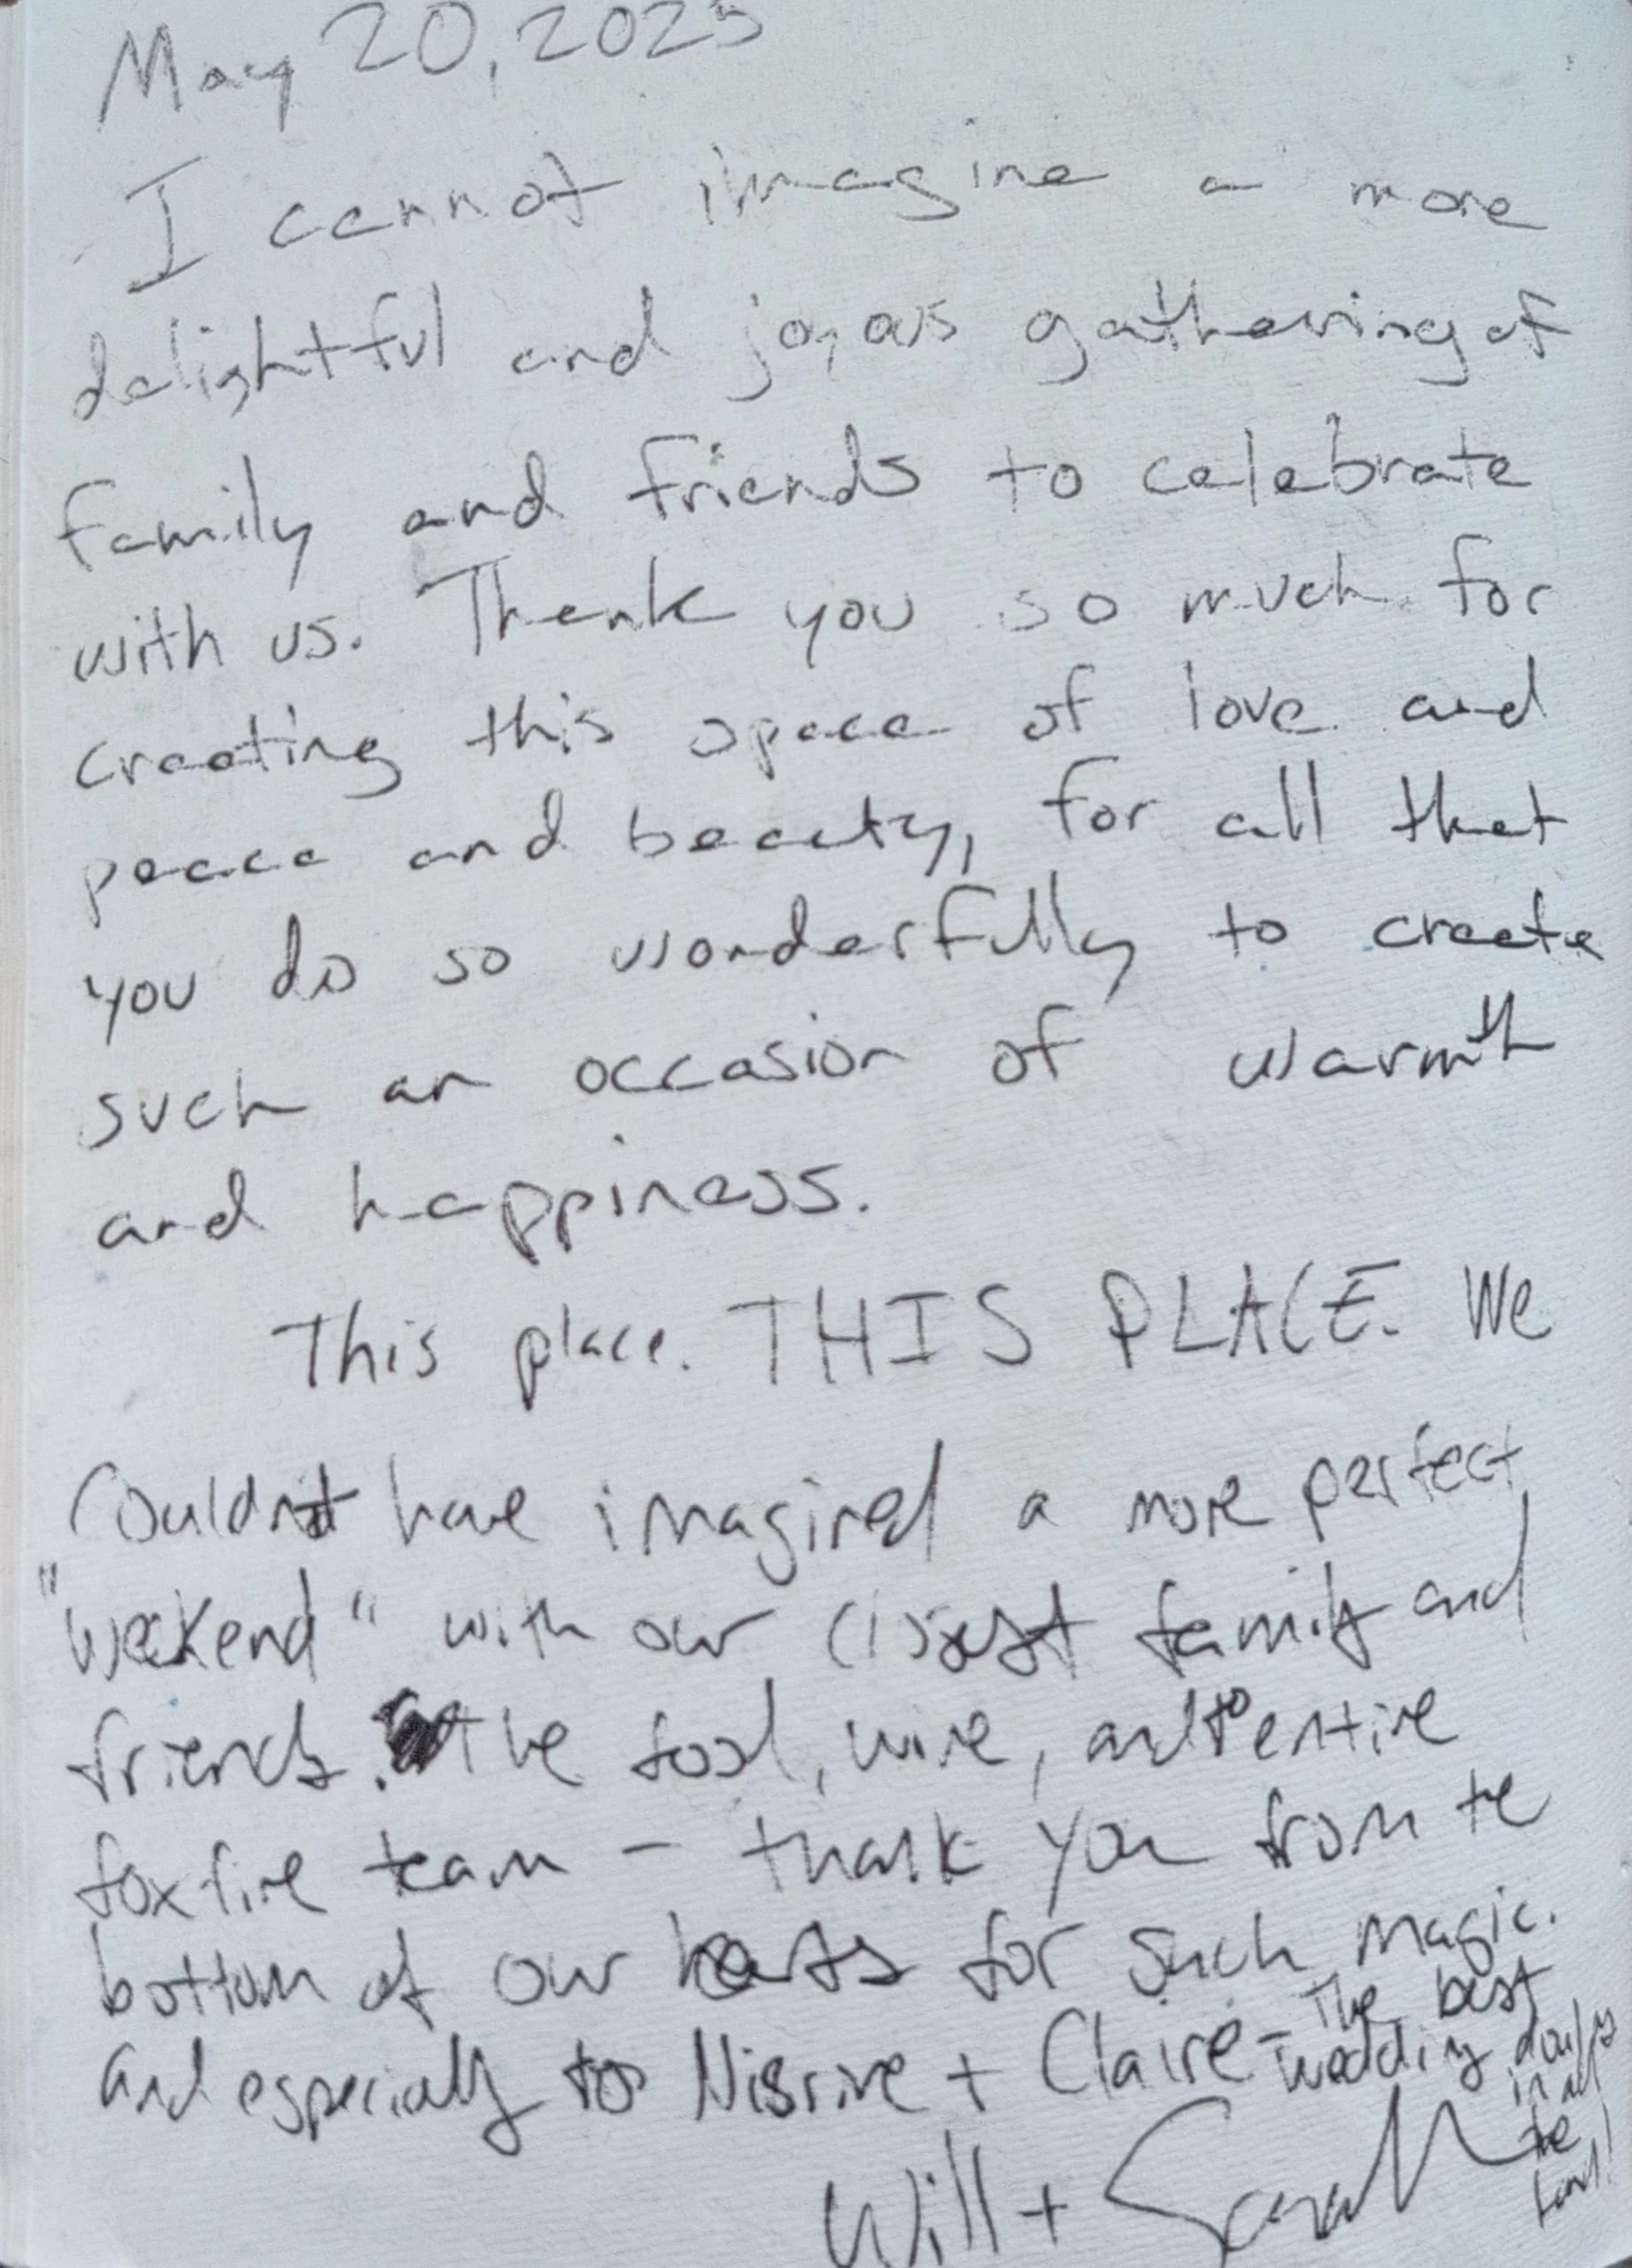 May 20, 2025
I cannot imagine a more
delightful and joyous gathering of
family and friends to celebrate
with us. Thank you so much for
creating this space of love and
peace and beauty, for all that
you do so wonderfully to create
such an occasion of warmth
and happiness.
This place. THIS PLACE. We
Couldn't have imagined a more perfect
"weekend" with our closest family and
friends. The food, wine, and attentive
foxfire team - thank you from the
bottom of our hearts for such magic.
and especially to Nisrine + Claire - The best
wedding
in all
the
land!
Will + Sarah